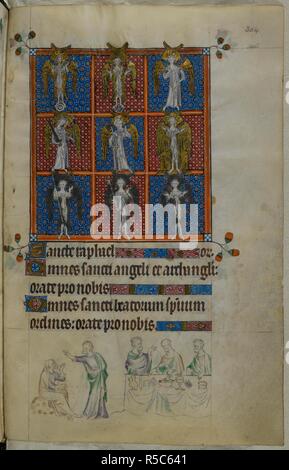 304
Sancte raphael or
mnes sancti angeli et archangeli:
orate pro nobis
Omnes sancti beatorum spirituum
ordines: orate pro nobis
alamy
www.alamy.com
R5C641